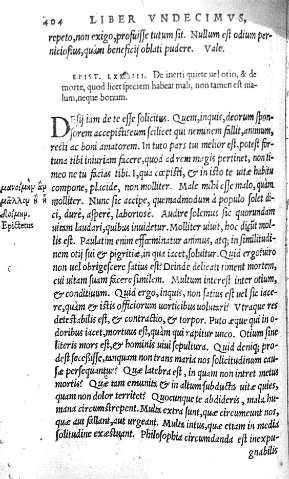 404 LIBER VNDECIMVS,
repeto, non exigo, profuisse tutum sit. Nullum est odium per-
niciosius, quàm beneficij oblati pudere. Vale.
EPIST. De inerti quiete vel otio, & de
morte, quod licet speciem habeat mali, non tamen est ma-
lum, neque bonum.
DEsij iam de te esse solicitus. Quem, inquis, deorum spon-
sorem accepisti? eum scilicet qui neminem fallit, animum,
recti ac boni amatorem. In tuto pars tui melior est. potest for-
tuna tibi iniuriam facere, quod ad rem magis pertinet, non ti-
meo ne tu facias tibi. I, qua cœpisti, & in isto te uitæ habitu
compone, placide, non molliter. Male mihi esse malo, quàm
molliter. Nunc sic accipe, quemadmodum à populo solet di-
ci, durè, asperè, laboriosè. Audire solemus sic quorundam
uitam laudari, quibus inuidetur. Molliter uiuit, hoc dicit mol-
lis est. Paulatim enim effœminatur animus, atq; in similitudi-
nem otij sui & pigritiæ, in qua iacet, soluitur. Quid ergo? uiro
non uel obrigescere satius est? Deinde delicati timent mortem,
cui uitam suam facere similem. Multum interest inter otium,
& conditiuum. Quid ergo, inquis, non satius est uel sic iace-
re, quàm in istis officiorum vorticibus volutari? Vtraque res
detestabilis est, & contractio, & torpor. Puto æque qui in o-
doribus iacet, mortuus est, quàm qui rapitur unco. Otium sine
literis mors est, & hominis uiui sepultura. Quid deniq; pro-
dest secessisse, tanquam non trans maria nos solicitudinum cau-
sæ persequantur? Quæ latebra est, in quam non intret metus
mortis? Quæ tam emunita & in altum subducta uitæ quies,
quam non dolor territet? Quocunque te abdideris, mala hu-
mana circumstrepent. Multa extra sunt, quæ circumeunt nos,
quæ aut fallant, aut urgeant. Multa intus, quæ etiam in media
solitudine exæstuant. Philosophia circumdanda est inexpu-
gnabilis
Epictetus